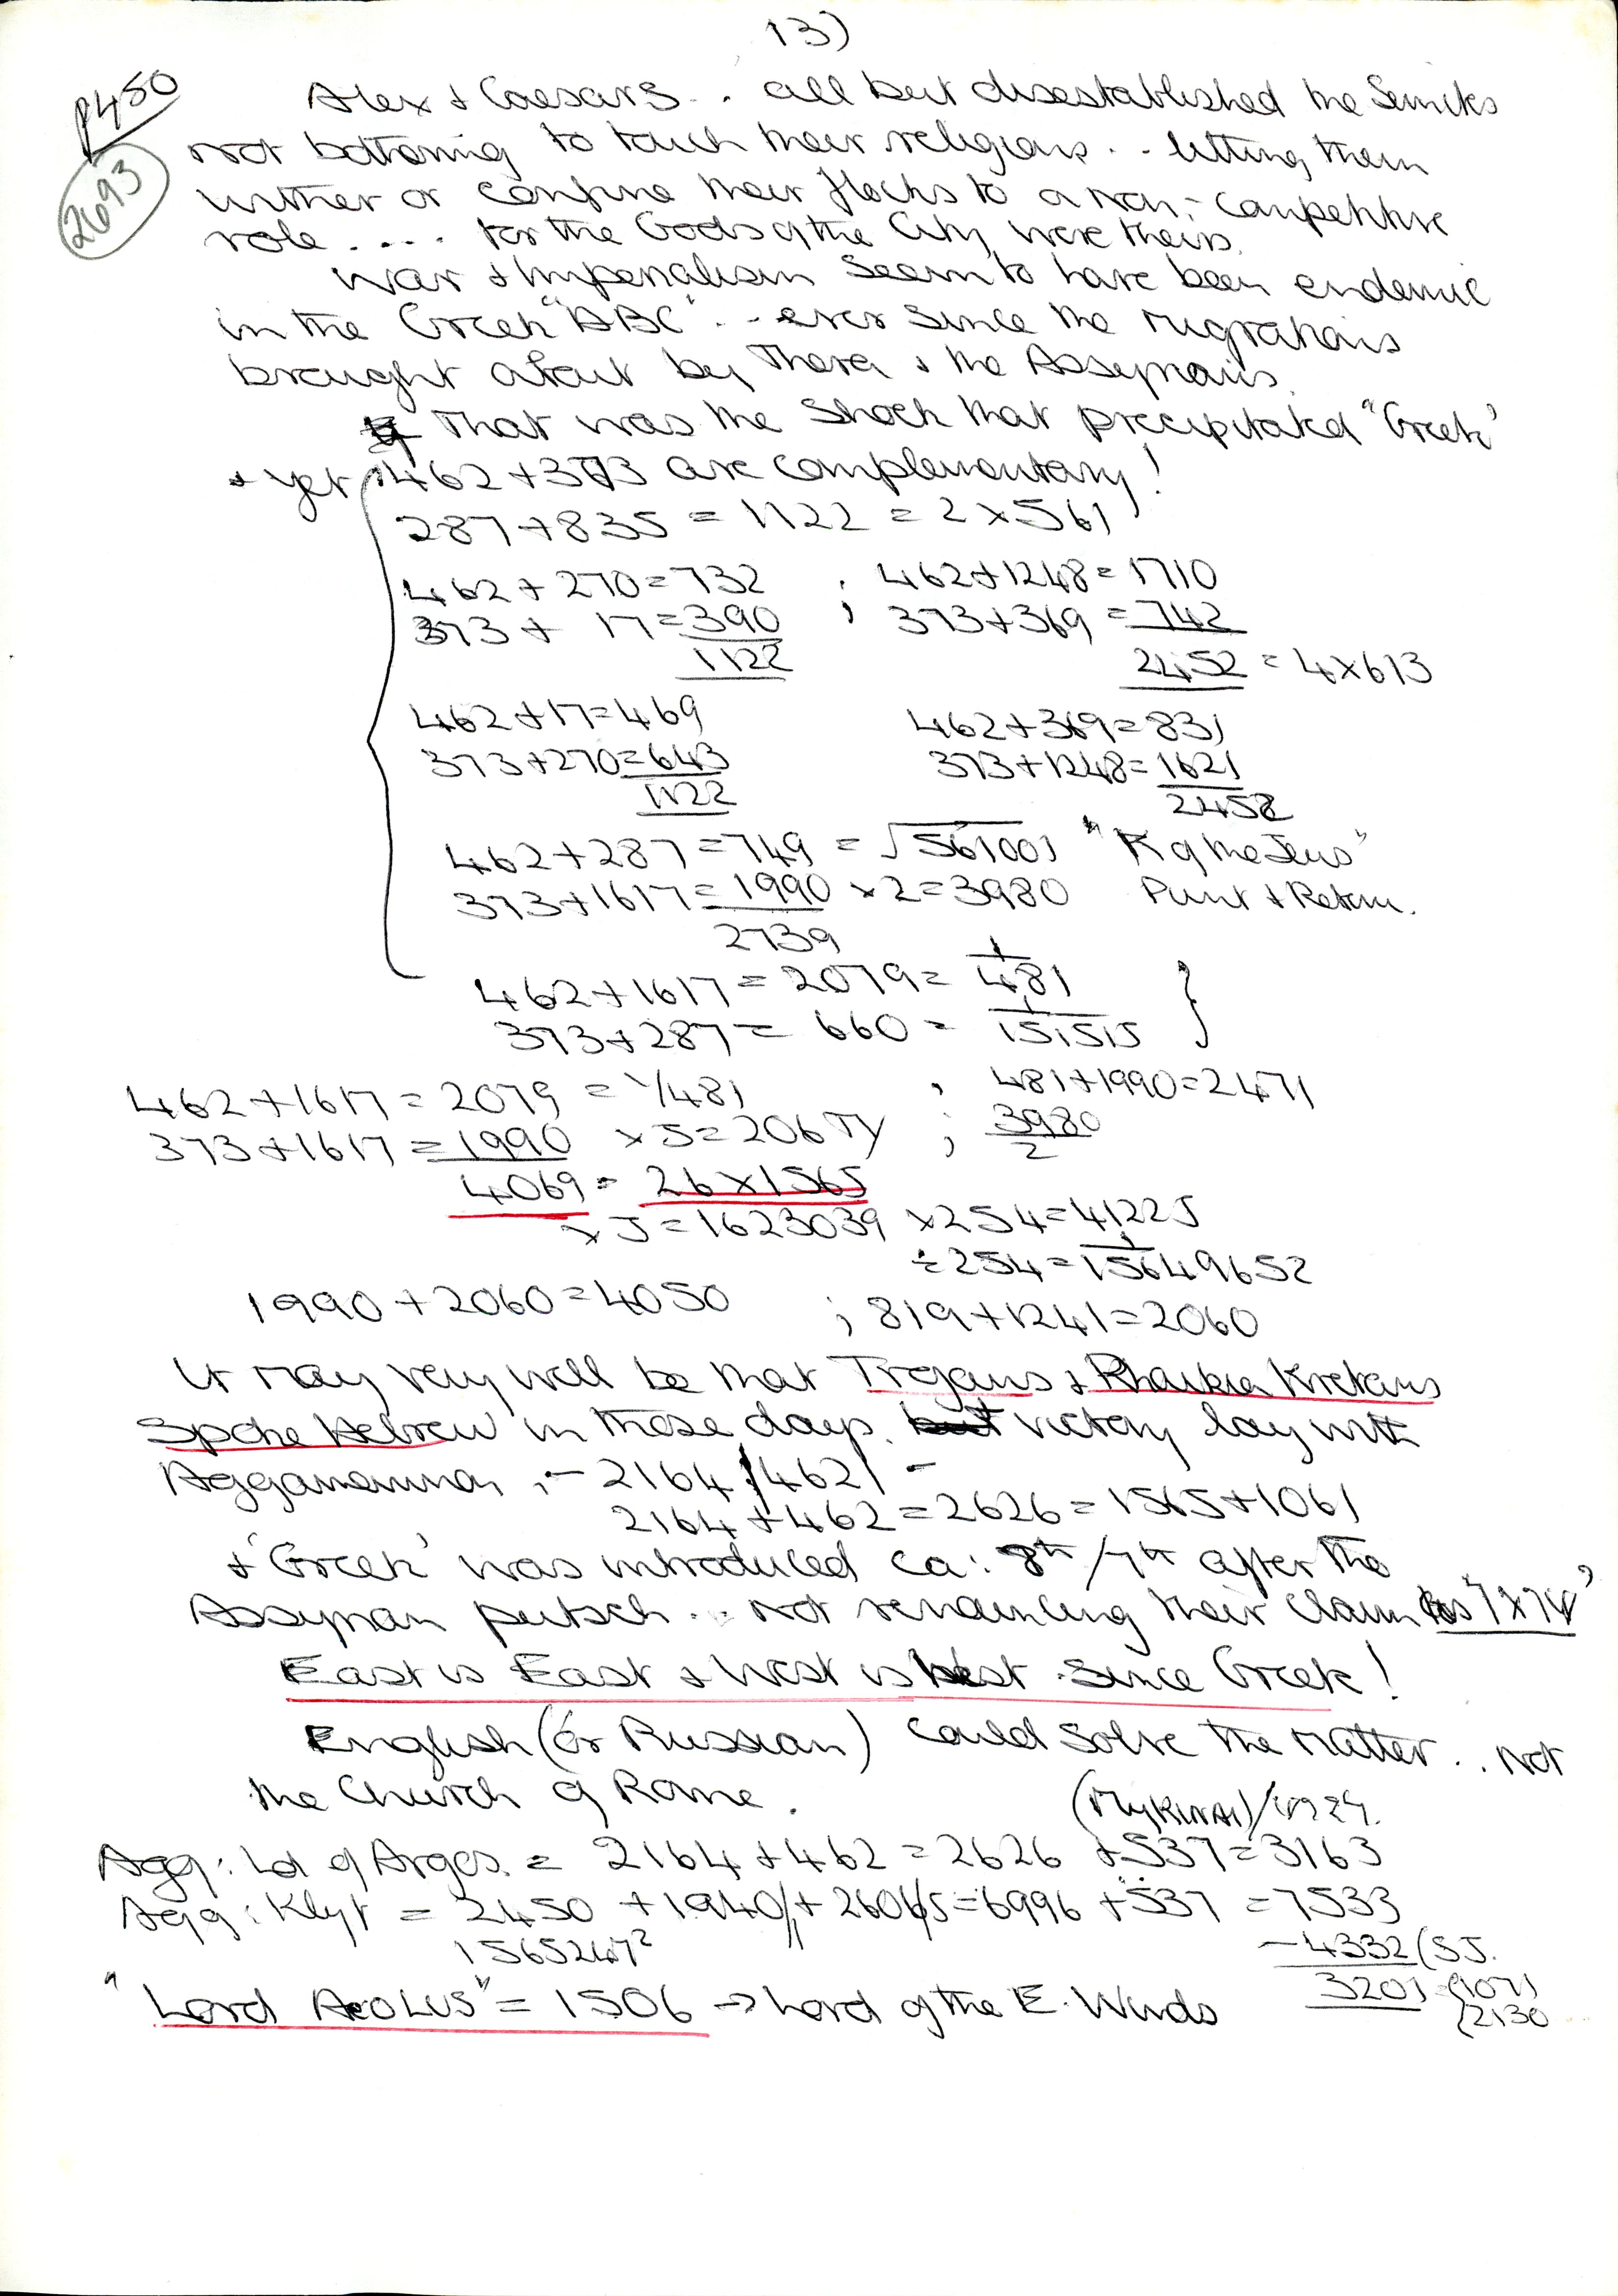 13)
P450
2693
Alex & Caesars .. all but disestablished the Semites
not bothering to touch their religions .. letting them
wither or confine their flocks to a non-competitive
role .... for the Gods of the City were theirs.
War & Imperialism seem to have been endemic
in the Greek "ABC" .. ever since the migrations
brought about by Thera & the Assyrians.
That was the shock that precipitated "Greek"
& yet 462+373 are complementary!
287+835 = 1122 = 2x561
462+270=732 ; 462+1248=1710
373+ 17=390 ; 373+369 =742
1122 2452 = 4x613
462+17=469 462+369=831
373+270=643 373+1248=1621
1122 2452
462+287=749 = √561001 "K of the Jews"
373+1617=1990 x2=3980 Punt & Return.
2739
462+1617=2079= 1/481
373+287= 660 = 1/151515
462+1617=2079 = 1/481 ; 481+1990=2471
373+1617=1990 x5=206 ; 3980/2
4069 = 26x1565
x J=1623039 x254=4122J
÷254=1/15649652
1990+2060=4050 ; 819+1241=2060
It may very well be that Trojans & Kretans
spoke Hebrew in those days. victory lay with
Aggamemnon ,- 2164 /462/ -
2164+462=2626=1565+1061
& 'Greek' was introduced ca: 8th/7th after the
Assyrian putsch .. not renouncing their claim as "7x74"
East is East & West is best since Greek!
English (or Russian) could solve the matter .. not
the Church of Rome.
(MyKHNAI)
Agg: Ld of Argos. = 2164+462=2626 +537=3163
Agg: Klyt = 2450 +1940/+2606/5=6996 +537 =7533
1565247² -4332(SJ.
3201 (1071
(2130
"Lord AEOLUS" = 1506 → Lord of the E. Winds